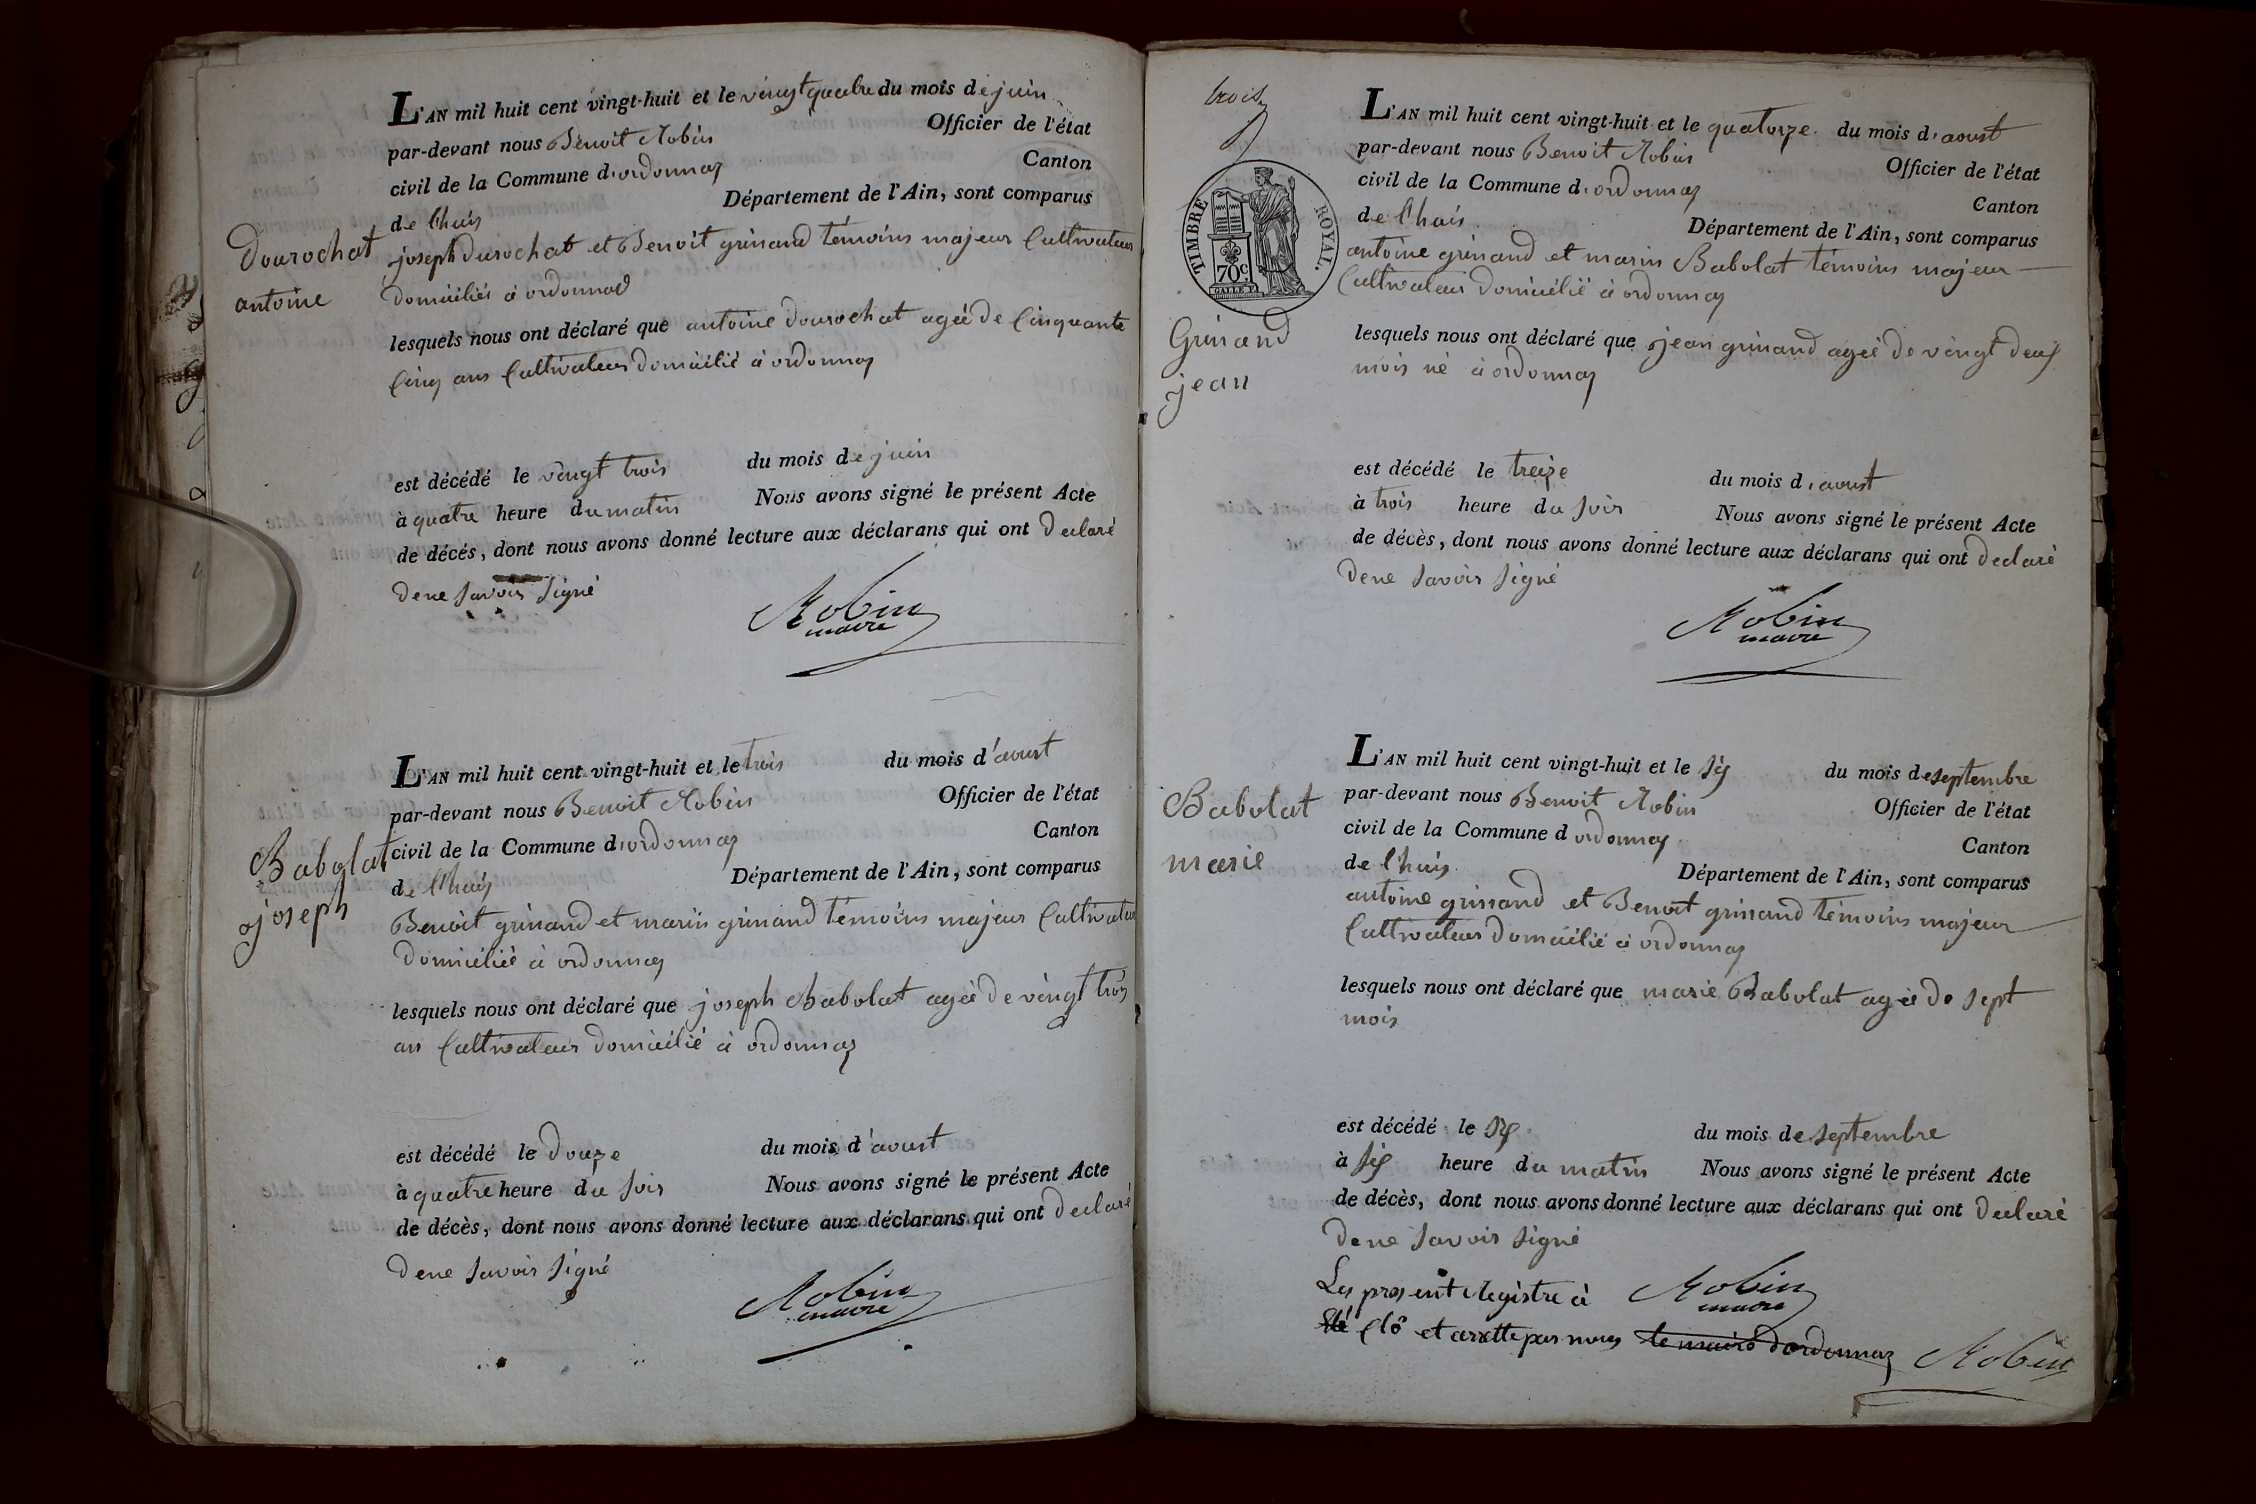 L'AN mil huit cent vingt-huit et le vingt quatre du mois de juin
par-devant nous Benoit Robin Officier de l'état
civil de la Commune d'ordonnaz Canton
de l'huis Département de l'Ain, sont comparus
Dourochat
antoine
joseph durochat et Benoit grinand témoins majeur Cultivateur
domicilié à ordonnaz
lesquels nous ont déclaré que antoine dourochat ageé de Cinquante
Cinq ans Cultivateur domicilié à ordonnaz
est décédé le vingt trois du mois de juin
à quatre heure du matin Nous avons signé le présent Acte
de décés, dont nous avons donné lecture aux déclarans qui ont declaré
de ne savoir signé
Robin
maire
L'AN mil huit cent vingt-huit et le trois du mois d'aoust
par-devant nous Benoit Robin Officier de l'état
civil de la Commune d'ordonnaz Canton
de l'huis Département de l'Ain, sont comparus
Babolat
joseph
Benoit grinand et marin grinand témoins majeur Cultivateur
domicilié à ordonnaz
lesquels nous ont déclaré que joseph Babolat ageé de vingt trois
an Cultivateur domicilié à ordonnaz
est décédé le douze du mois d'aoust
à quatre heure du soir Nous avons signé le présent Acte
de décès, dont nous avons donné lecture aux déclarans qui ont declaré
de ne savoir signé
Robin
maire
trois
TIMBRE ROYAL.
70c
L'AN mil huit cent vingt-huit et le quatorze du mois d'aoust
par-devant nous Benoit Robin Officier de l'état
civil de la Commune d'ordonnaz Canton
de l'huis Département de l'Ain, sont comparus
antoine grinand et marin Babolat témoins majeur
Cultivateur domicilié à ordonnaz
Grinand
jean
lesquels nous ont déclaré que jean grinand ageé de vingt deux
mois né à ordonnaz
est décédé le treize du mois d'aoust
à trois heure du soir Nous avons signé le présent Acte
de décès, dont nous avons donné lecture aux déclarans qui ont declaré
de ne savoir signé
Robin
maire
L'AN mil huit cent vingt-huit et le six du mois de septembre
par-devant nous Benoit Robin Officier de l'état
civil de la Commune d ordonnaz Canton
de l'huis Département de l'Ain, sont comparus
Babolat
marie
antoine grinand et Benoit grinand témoins majeur
Cultivateur domicilié à ordonnaz
lesquels nous ont déclaré que marie Babolat ageé de sept
mois
est décédé le six du mois de septembre
à six heure du matin Nous avons signé le présent Acte
de décès, dont nous avons donné lecture aux déclarans qui ont declaré
de ne savoir signé
Robin
maire
Les present Registre à
été Clô et arrette par nous le maire d'ordonnaz
Robin